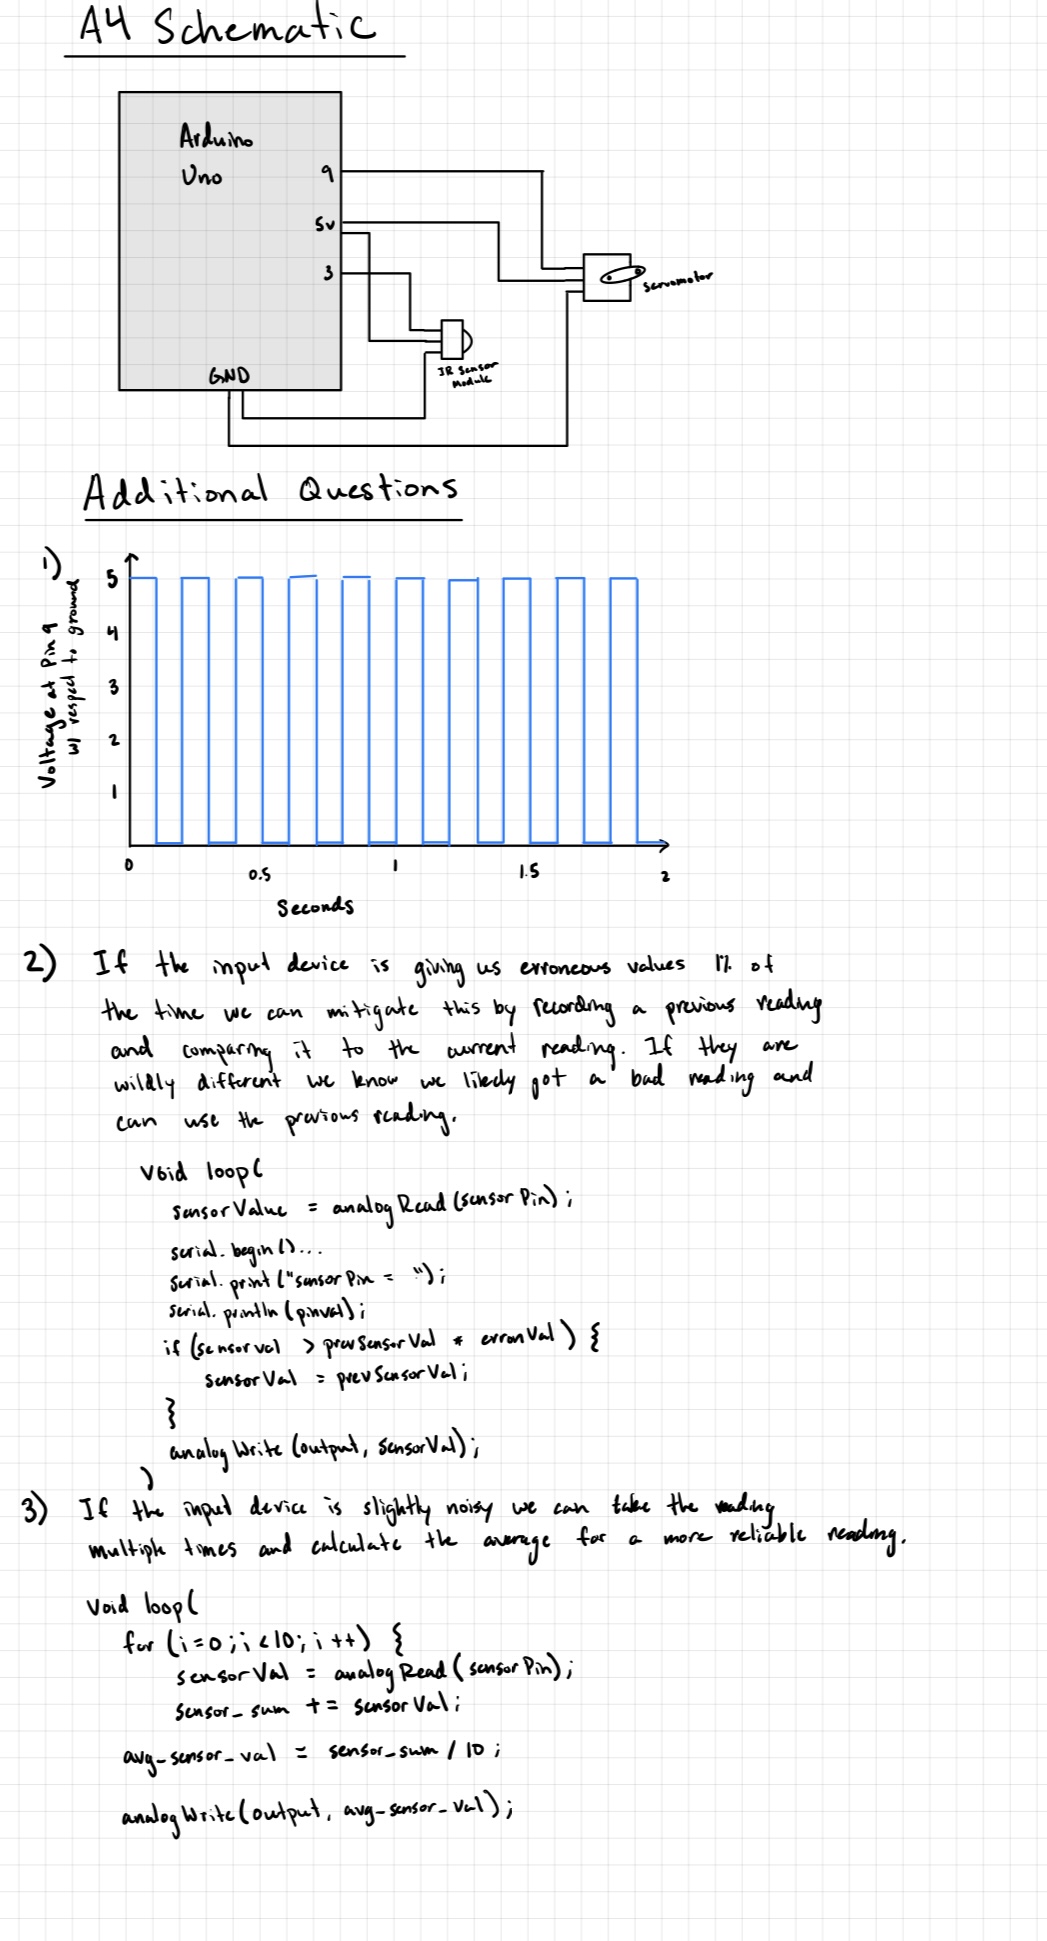 A4 Schematic
Arduino
Uno
9
5v
3
GND
Servomotor
IR Sensor
Module
Additional Questions
1)
Voltage at Pin 9
w/ respect to ground
5
4
3
2
1
0
0.5
1
1.5
2
Seconds
2) If the input device is giving us erroneous values 1% of
the time we can mitigate this by recording a previous reading
and comparing it to the current reading. If they are
wildly different we know we likely got a bad reading and
can use the previous reading.
Void loop(
sensorValue = analogRead(sensorPin);
serial.begin()...
serial.print("sensorPin = ");
serial.println(pinval);
if (sensorval > prevSensorVal * erronVal) {
sensorVal = prevSensorVal;
}
analogWrite(output, sensorVal);
)
3) If the input device is slightly noisy we can take the reading
multiple times and calculate the average for a more reliable reading.
Void loop(
for (i=0;i<10;i++) {
sensorVal = analogRead(sensorPin);
sensor_sum += sensorVal;
avg_sensor_val = sensor_sum / 10;
analogWrite(output, avg_sensor_val);